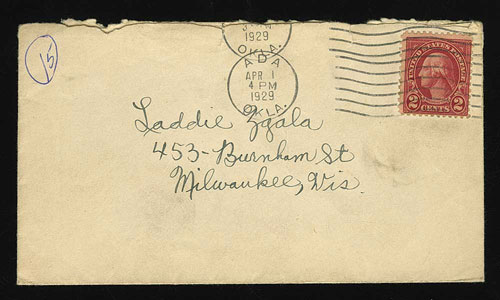 15
1929
OKLA.
ADA
APR 1
4 PM
1929
OKLA.
UNITED STATES POSTAGE
2 CENTS 2
Laddie Zgala
453-Burnham St
Milwaukee, Wis.